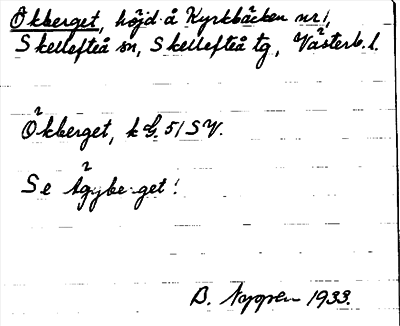 Ökberget, höjd å Kyrkbäcken nr 1,
Skellefteå sn, Skellefteå tg, Västerb. l.
Ökberget, k G. 51 SV.
Se
B. 1933.